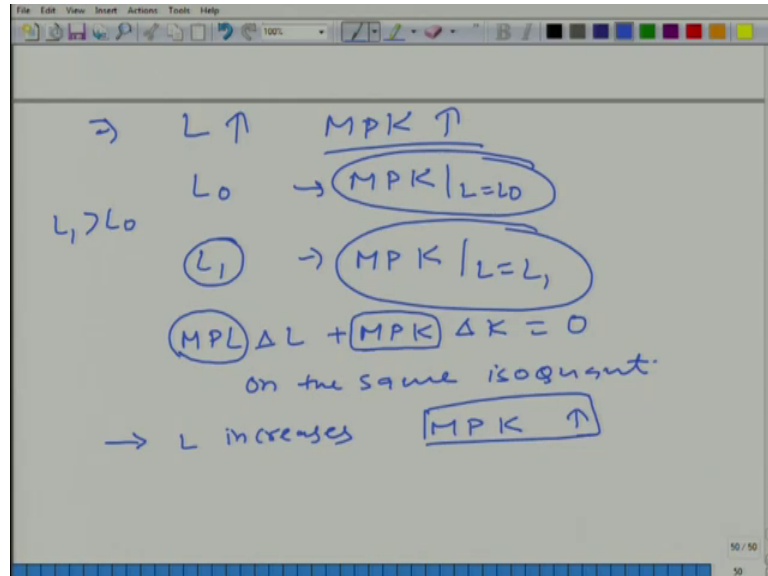 File Edit View Insert Actions Tools Help
100%
B I
⇒ L ↑ MPK ↑
L0 → MPK|L=L0
L1 > L0
L1 → MPK|L=L1
MPL ΔL + MPK ΔK = 0
on the same isoquant.
→ L increases MPK ↑
50 / 50
50